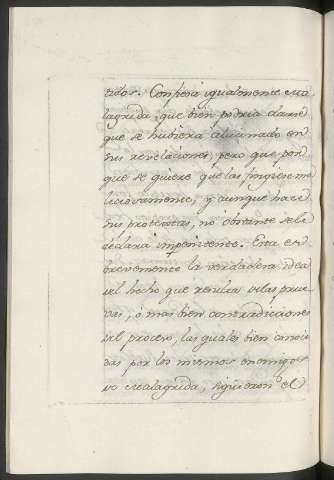 tidos. Confiesa igualmente Ma
lagrida, que bien podria darse
que se hubiera alucinado en
sus revelaciones; pero que por
que se quiere que las fingiese ma
liciosamente; y aunque hace
sus protestas, no obstante se le
declara impenitente. Esta es
brevemente la verdadera idea
del hecho que resulta de las prue
vas, ó mas bien contradicciones
del proceso, las quales bien conoci
das por los mismos enemigos
de Malagrida, siguieron el